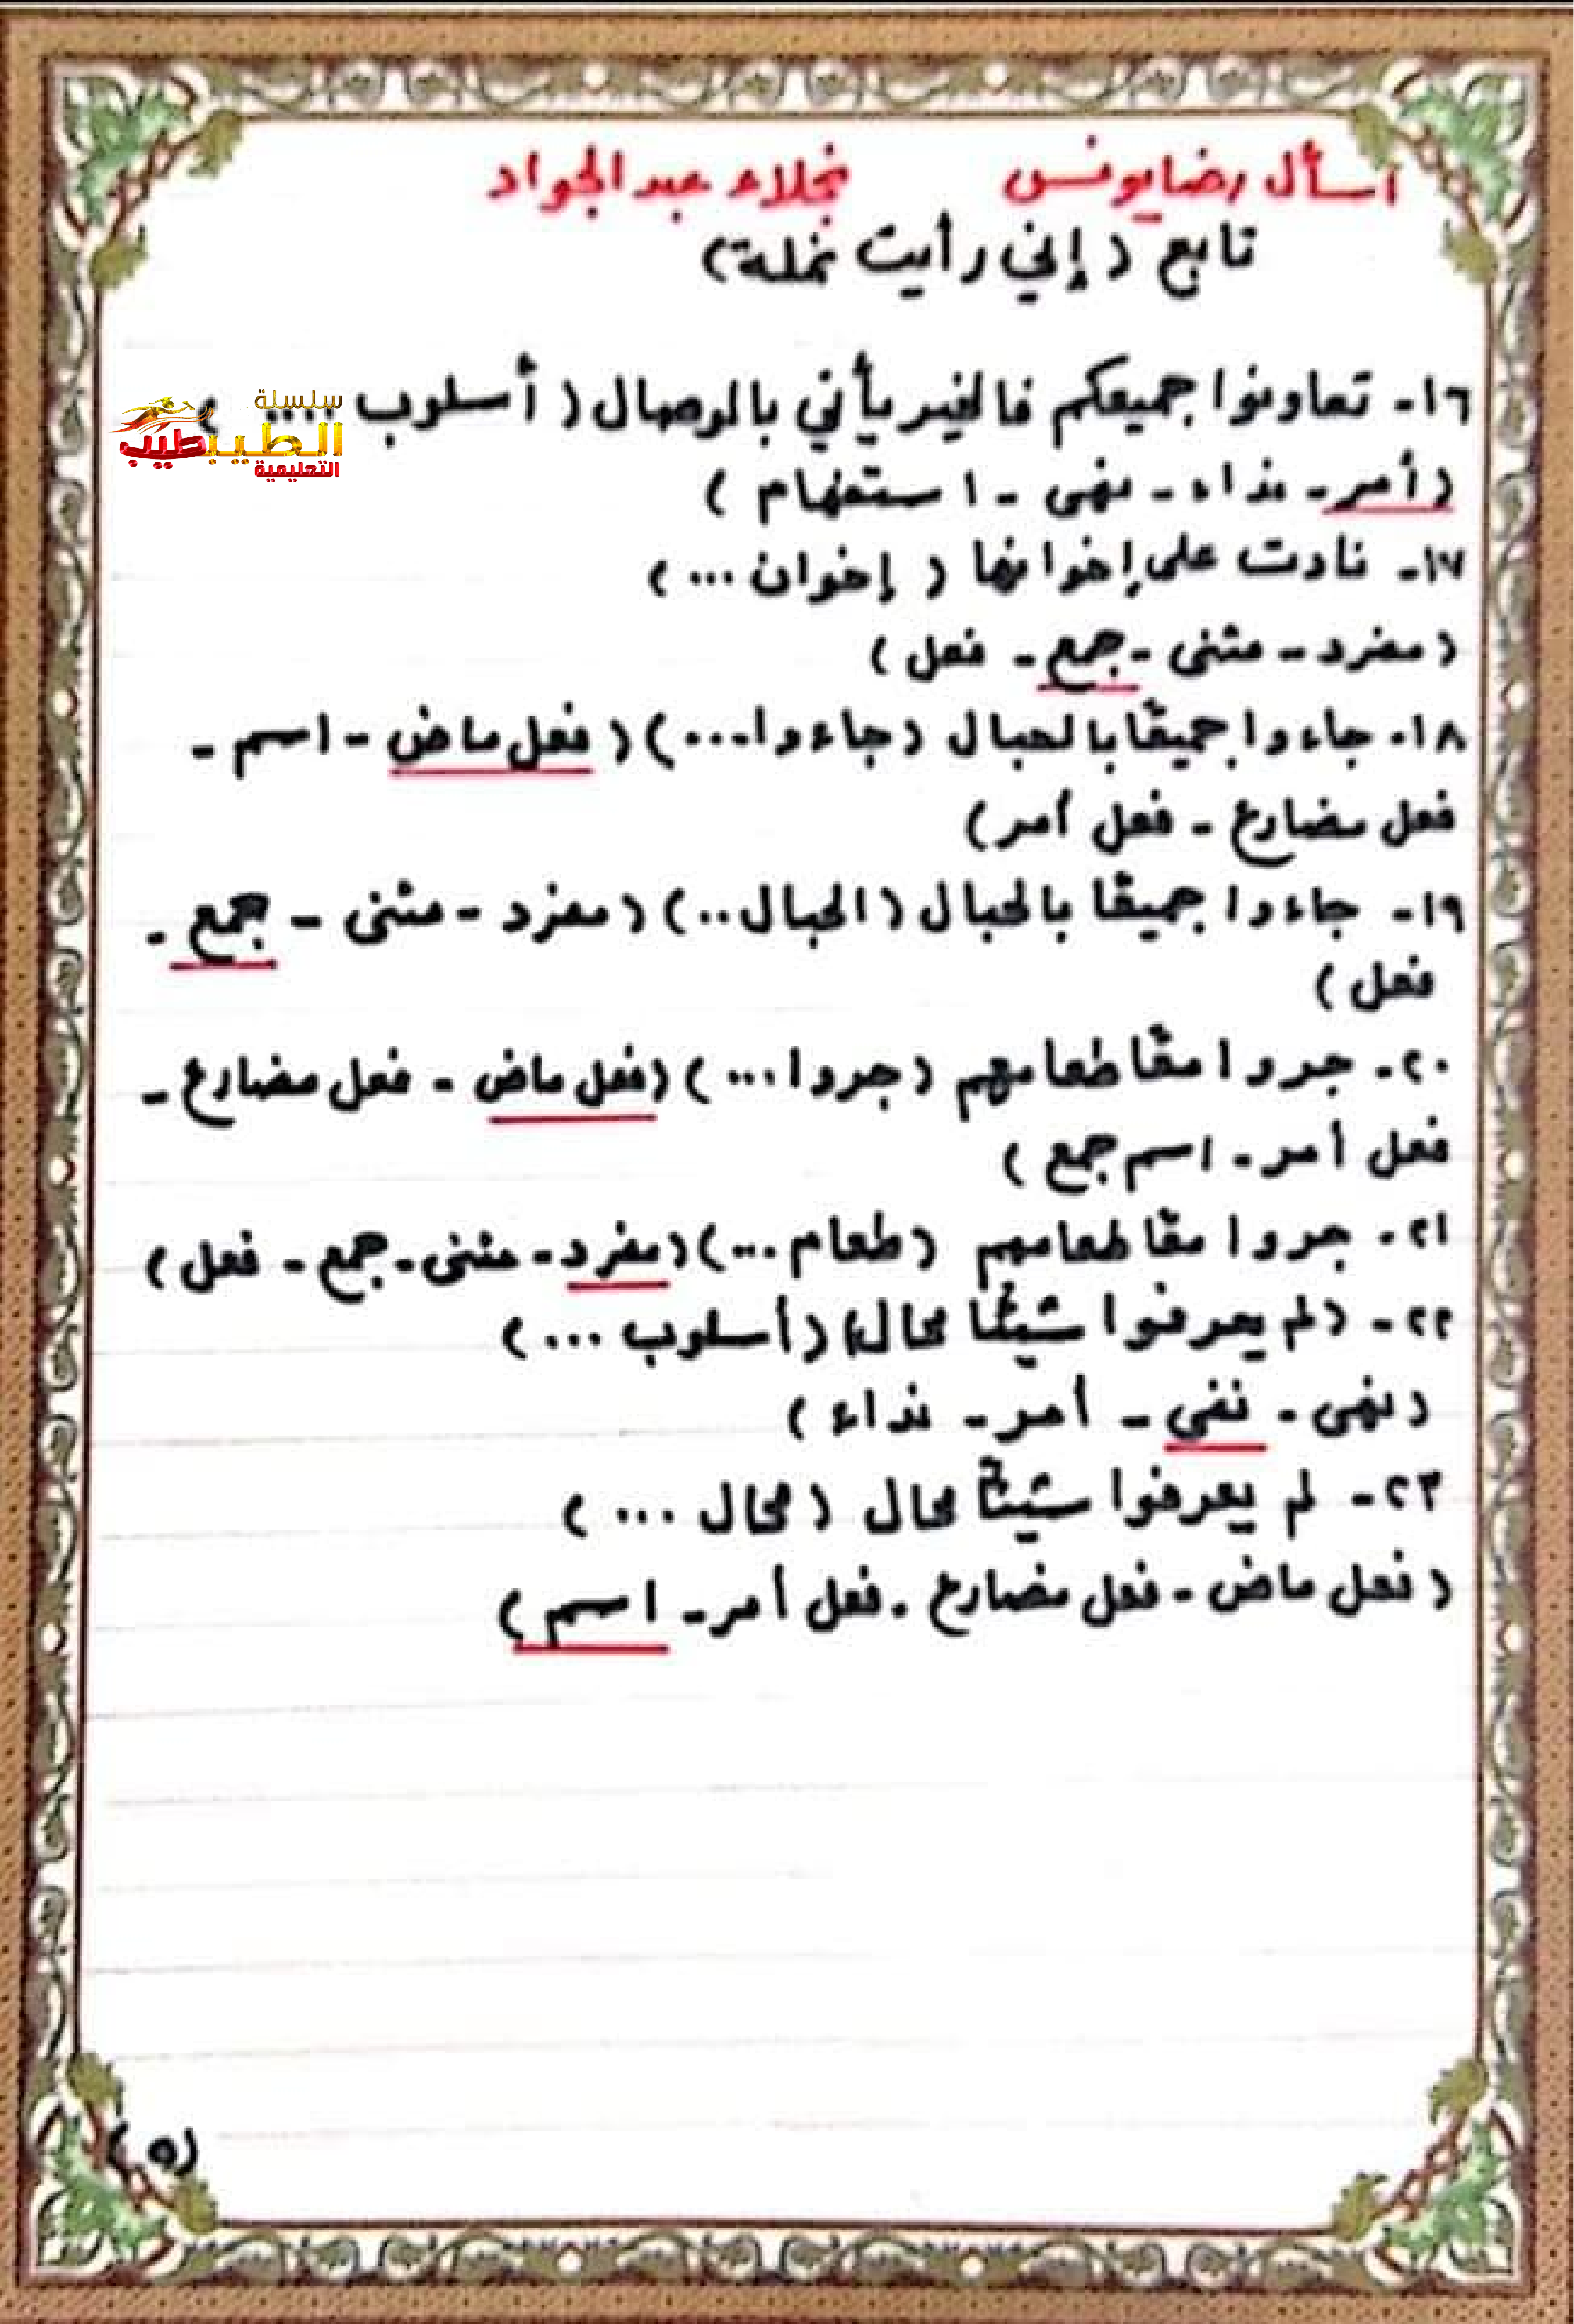 أسأل رضا يونس نجلاء عبد الجواد
تابع (إني رأيت نملة)
١٦- تعاونوا جميعكم فالخير يأتي بالوصال (أسلوب ... )
سلسلة
الطيب طيب
التعليمية
(أمر - نداء - نهى - استفهام)
١٧- نادت على إخوانها (إخوان ...)
(مفرد - مثنى - جمع - فعل)
١٨- جاءوا جميعًا بالحبال (جاءوا ...) (فعل ماض - اسم -
فعل مضارع - فعل أمر)
١٩- جاءوا جميعًا بالحبال (الحبال ..) (مفرد - مثنى - جمع -
فعل)
٢٠- جروا معًا طعامهم (جروا ...) (فعل ماض - فعل مضارع -
فعل أمر - اسم جمع)
٢١- جروا معًا طعامهم (طعام ...) (مفرد - مثنى - جمع - فعل)
٢٢- (لم يعرفوا شيئًا محال) (أسلوب ...)
(نهى - نفي - أمر - نداء)
٢٣- لم يعرفوا شيئًا محال (محال ...)
(فعل ماض - فعل مضارع - فعل أمر - اسم)
(٥)